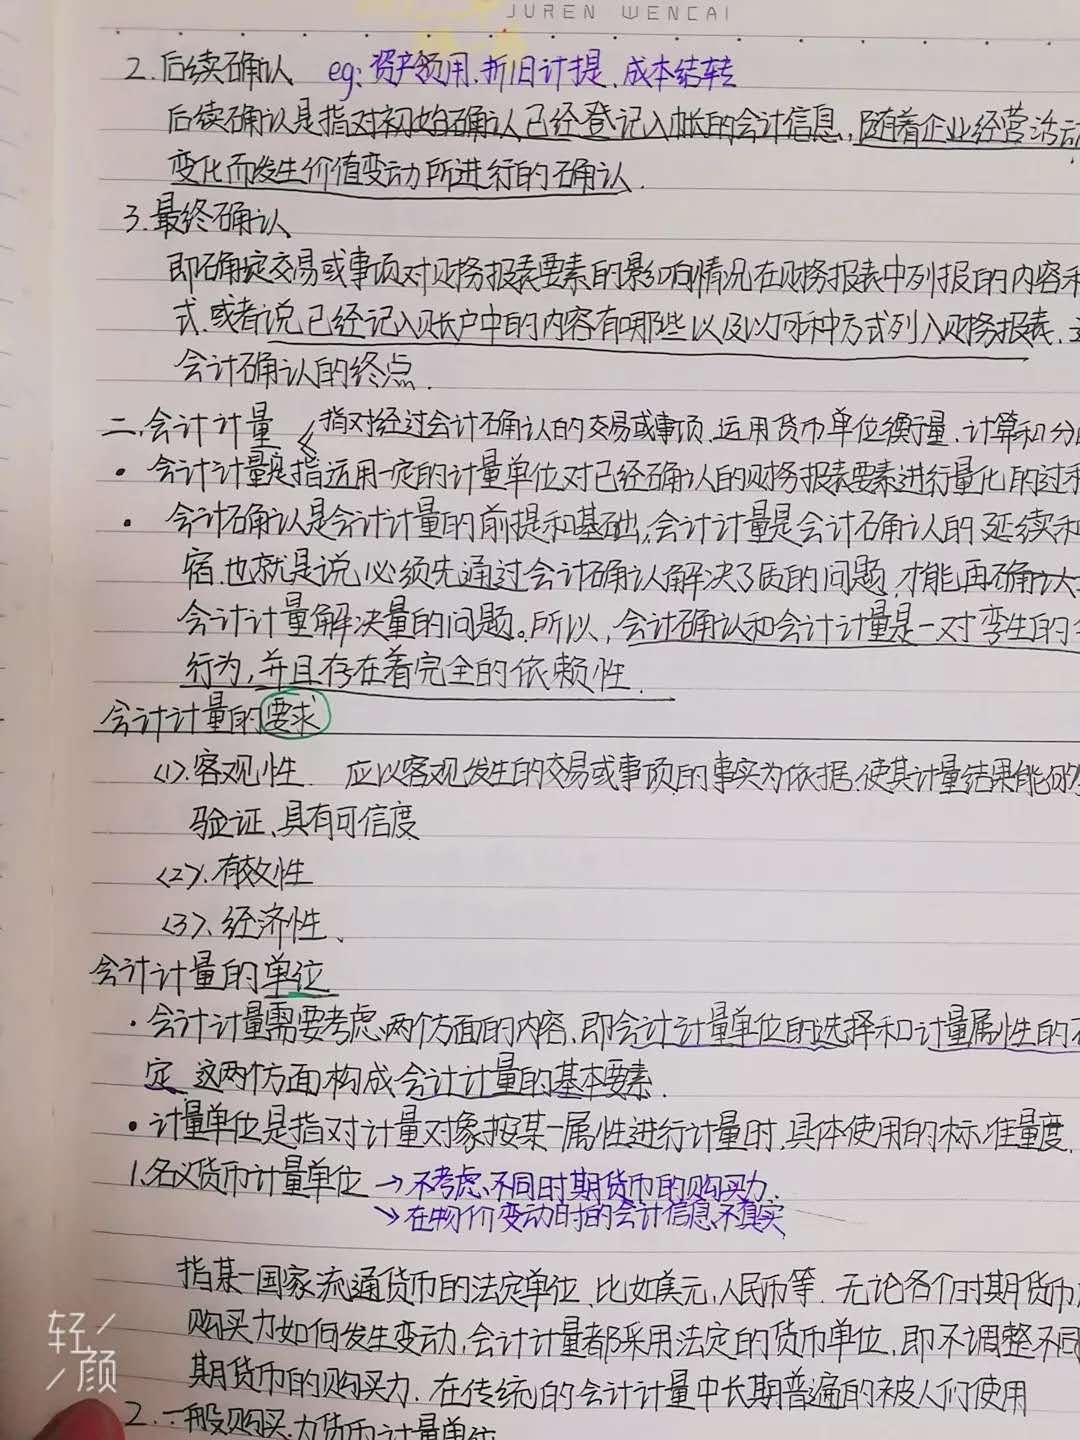 JUREN WENCAI
2.后续确认 eg:资产领用、折旧计提、成本结转
后续确认是指对初始确认已经登记入帐的会计信息,随着企业经营活动
变化而发生价值变动所进行的确认.
3.最终确认
即确定交易或事项对财务报表要素的影响情况在财务报表中列报的内容和
式.或者说已经记入账户中的内容有哪些以及以何种方式列入财务报表.
会计确认的终点.
二.会计计量 指对经过会计确认的交易或事项.运用货币单位衡量.计算和分
·会计计量是指运用一定的计量单位对已经确认的财务报表要素进行量化的过
·会计确认是会计计量的前提和基础,会计计量是会计确认的延续和
宿.也就是说必须先通过会计确认解决了质的问题.才能再确认
会计计量解决量的问题。所以,会计确认和会计计量是一对孪生的
行为,并且存在着完全的依赖性.
会计计量的要求
(1).客观性. 应以客观发生的交易或事项的事实为依据.使其计量结果能
验证、具有可信度
(2).有效性
(3)、经济性、
会计计量的单位
·会计计量需要考虑两个方面的内容.即会计计量单位的选择和计量属性的
定.这两个方面构成会计计量的基本要素.
·计量单位是指对计量对象按某一属性进行计量时,具体使用的标准量度.
1.名义货币计量单位 →不考虑不同时期货币的购买力.
→在物价变动时的会计信息不真实
指某一国家流通货币的法定单位、比如美元,人民币等. 无论各个时期货币
购买力如何发生变动,会计计量都采用法定的货币单位,即不调整不同
期货币的购买力.在传统的会计计量中长期普遍的被人们使用
2.一般购买力货币计量单位
轻颜